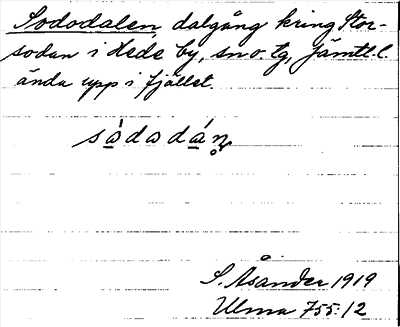 Sododalen, dalgång kring Stor-
sodan i Hede by, sn o. tg, Jämtl. l.
ända upp i fjället.
sὰdadάn̥
S. Åsander 1919
Ulma 755:12